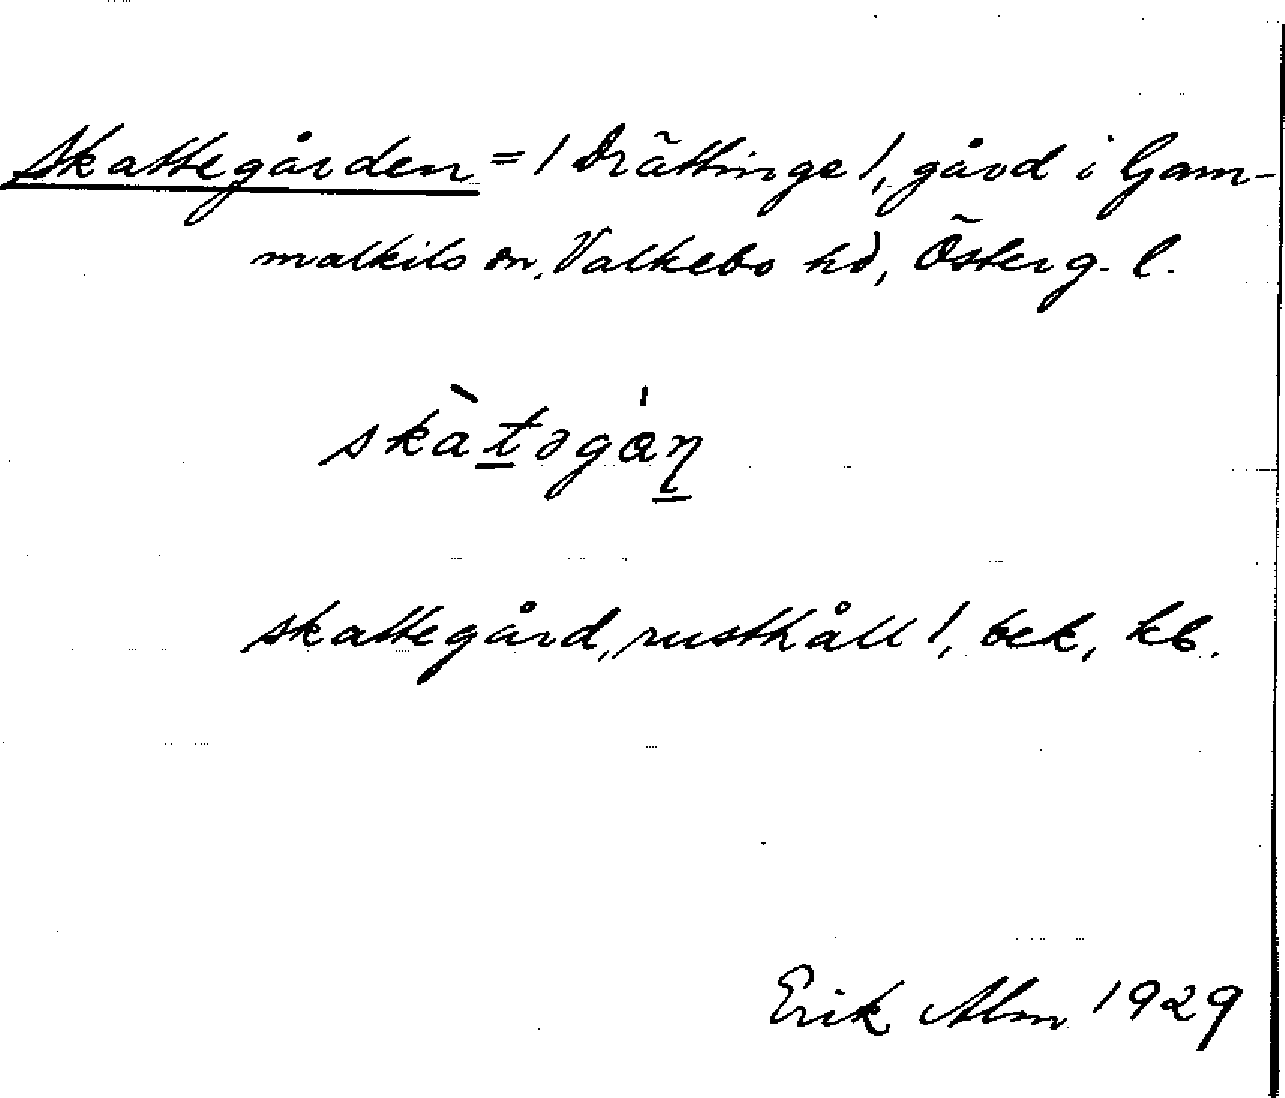 Skattegården = / Drättinge /, gård i Gam-
malkils sn, Valkebo hd, Österg. l.
skàt̲əgɑ́n̲
skattegård, rusthåll /, bek, kb.
Erik Alm 1929